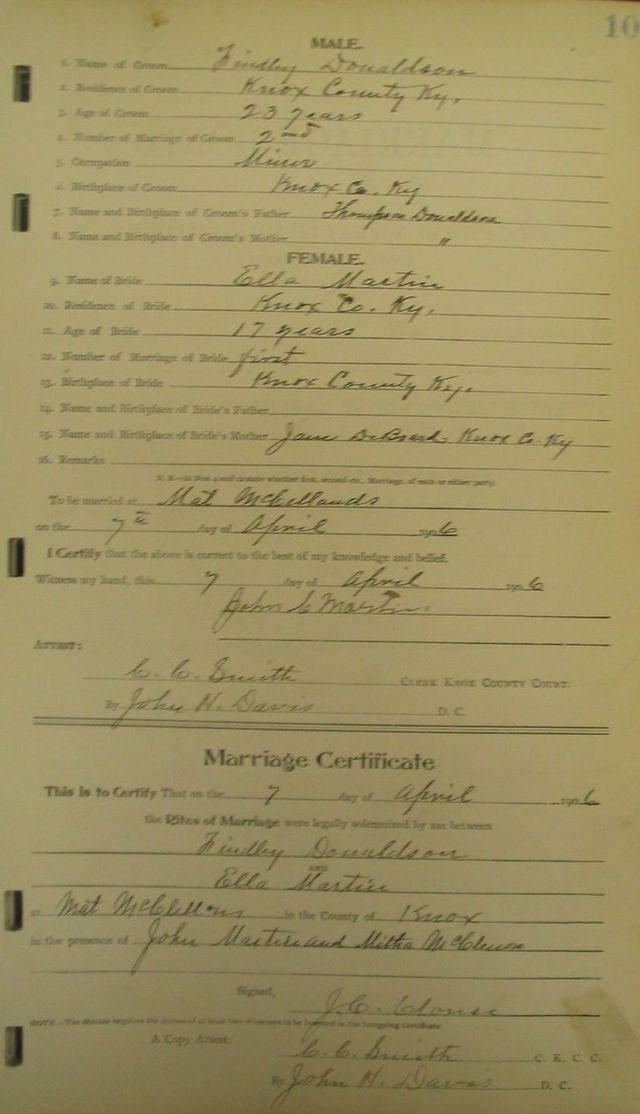 10
MALE.
1. Name of Groom Findley Donaldson
2. Residence of Groom Knox County Ky.
3. Age of Groom 23 years
4. Number of Marriage of Groom 2nd
5. Occupation Miner
6. Birthplace of Groom Knox Co. Ky
7. Name and Birthplace of Groom's Father Thompson Donaldson
8. Name and Birthplace of Groom's Mother "
FEMALE.
9. Name of Bride Ella Martin
10. Residence of Bride Knox Co. Ky.
11. Age of Bride 17 years
12. Number of Marriage of Bride first
13. Birthplace of Bride Knox County Ky.
14. Name and Birthplace of Bride's Father
15. Name and Birthplace of Bride's Mother Jane Knox Co. Ky
16. Remarks
state whether first, second etc., Marriage, of each or either party.
To be married at Mat McCellands
on the 7th day of April 1906
I Certify that the above is correct to the best of my knowledge and belief.
Witness my hand, this 7 day of April 1906
John C Martin
ATTEST:
C. C. Smith CLERK KNOX COUNTY COURT.
By John H. Davis D. C.
Marriage Certificate
This is to Certify That on the 7 day of April 1906
the Rites of Marriage were legally solemnized by me between
Findley Donaldson
AND
Ella Martin
at Mat in the County of Knox
in the presence of John Martin and
Signed, J. C.
NOTE.—The Statute requires the names of at least two witnesses to be inserted in the foregoing Certificate
A Copy Attest: C. C. Smith C. K. C. C.
By John H. Davis D. C.